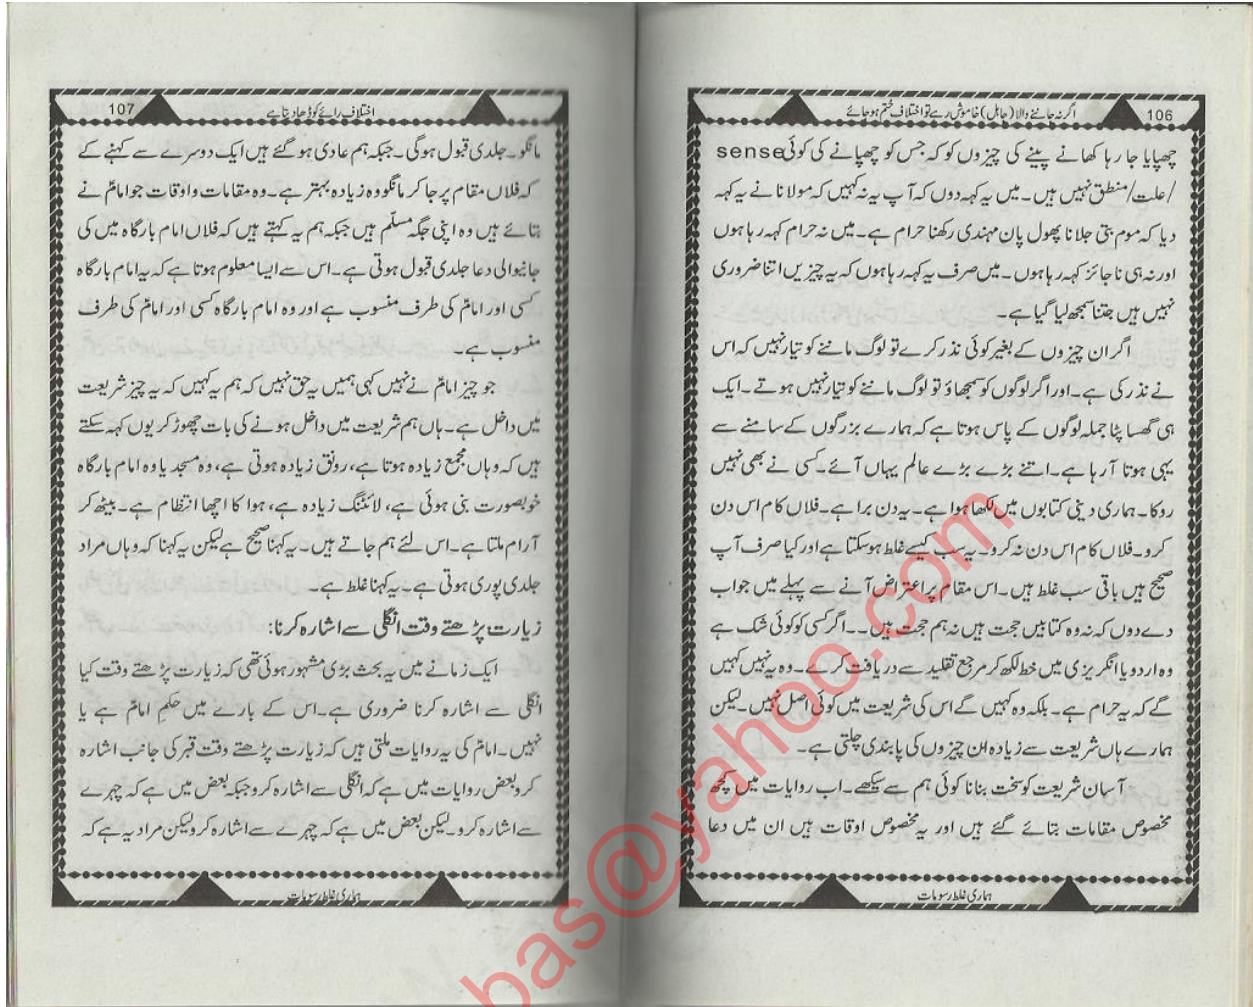 106
اگر نہ جاننے والا (جاہل) خاموش رہے تو اختلاف ختم ہو جائے
چھپایا جا رہا کھانے پینے کی چیزوں کو کہ جس کو چھپانے کی کوئی sense
/علت/منطق نہیں ہیں۔ میں یہ کہہ دوں کہ آپ یہ نہ کہیں کہ مولانا نے یہ کہہ
دیا کہ موم بتی جلانا پھول پان مہندی رکھنا حرام ہے۔ میں نہ حرام کہہ رہا ہوں
اور نہ ہی ناجائز کہہ رہا ہوں۔ میں صرف یہ کہہ رہا ہوں کہ یہ چیزیں اتنا ضروری
نہیں ہیں جتنا سمجھ لیا گیا ہے۔
اگر ان چیزوں کے بغیر کوئی نذر کرے تو لوگ ماننے کو تیار نہیں کہ اس
نے نذر کی ہے۔ اور اگر لوگوں کو سمجھاؤ تو لوگ ماننے کو تیار نہیں ہوتے۔ ایک
ہی گھسا پٹا جملہ لوگوں کے پاس ہوتا ہے کہ ہمارے بزرگوں کے سامنے سے
یہی ہوتا آ رہا ہے۔ اتنے بڑے بڑے عالم یہاں آئے۔ کسی نے بھی نہیں
روکا۔ ہماری دینی کتابوں میں لکھا ہوا ہے۔ یہ دن برا ہے۔ فلاں کام اس دن
کرو۔ فلاں کام اس دن نہ کرو۔ یہ سب کیسے غلط ہو سکتا ہے اور کیا صرف آپ
صحیح ہیں باقی سب غلط ہیں۔ اس مقام پر اعتراض آنے سے پہلے میں جواب
دے دوں کہ نہ وہ کتابیں حجت ہیں نہ ہم حجت ہیں۔۔ اگر کسی کو کوئی شک ہے
وہ اردو یا انگریزی میں خط لکھ کر مرجع تقلید سے دریافت کرے۔ وہ یہ نہیں کہیں
گے کہ یہ حرام ہے۔ بلکہ وہ کہیں گے اس کی شریعت میں کوئی اصل نہیں۔ لیکن
ہمارے ہاں شریعت سے زیادہ ان چیزوں کی پابندی چلتی ہے۔
آسان شریعت کو سخت بنانا کوئی ہم سے سیکھے۔ اب روایات میں کچھ
مخصوص مقامات بتائے گئے ہیں اور یہ مخصوص اوقات ہیں ان میں دعا
ہماری غلط رسومات
107
اختلاف رائے کو ڈھا دیتا ہے
مانگو۔ جلدی قبول ہوگی۔ جبکہ ہم عادی ہو گئے ہیں ایک دوسرے سے کہنے کے
کہ فلاں مقام پر جا کر مانگو وہ زیادہ بہتر ہے۔ وہ مقامات و اوقات جو امامؑ نے
بتائے ہیں وہ اپنی جگہ مسلّم ہیں جبکہ ہم یہ کہتے ہیں کہ فلاں امام بارگاہ میں کی
جانیوالی دعا جلدی قبول ہوتی ہے۔ اس سے ایسا معلوم ہوتا ہے کہ یہ امام بارگاہ
کسی اور امامؑ کی طرف منسوب ہے اور وہ امام بارگاہ کسی اور امامؑ کی طرف
منسوب ہے۔
جو چیز امامؑ نے نہیں کہی ہمیں یہ حق نہیں کہ ہم یہ کہیں کہ یہ چیز شریعت
میں داخل ہے۔ ہاں ہم شریعت میں داخل ہونے کی بات چھوڑ کر یوں کہہ سکتے
ہیں کہ وہاں مجمع زیادہ ہوتا ہے، رونق زیادہ ہوتی ہے، وہ مسجد یا وہ امام بارگاہ
خوبصورت بنی ہوئی ہے، لائٹنگ زیادہ ہے، ہوا کا اچھا انتظام ہے۔ بیٹھ کر
آرام ملتا ہے۔ اس لئے ہم جاتے ہیں۔ یہ کہنا صحیح ہے لیکن یہ کہنا کہ وہاں مراد
جلدی پوری ہوتی ہے۔ یہ کہنا غلط ہے۔
زیارت پڑھتے وقت انگلی سے اشارہ کرنا:
ایک زمانے میں یہ بحث بڑی مشہور ہوئی تھی کہ زیارت پڑھتے وقت کیا
انگلی سے اشارہ کرنا ضروری ہے۔ اس کے بارے میں حکمِ امامؑ ہے یا
نہیں۔ امامؑ کی یہ روایات ملتی ہیں کہ زیارت پڑھتے وقت قبر کی جانب اشارہ
کرو بعض روایات میں ہے کہ انگلی سے اشارہ کرو جبکہ بعض میں ہے کہ چہرے
سے اشارہ کرو۔ لیکن بعض میں ہے کہ چہرے سے اشارہ کرو لیکن مراد یہ ہے کہ
ہماری غلط رسومات
bas@yahoo.com